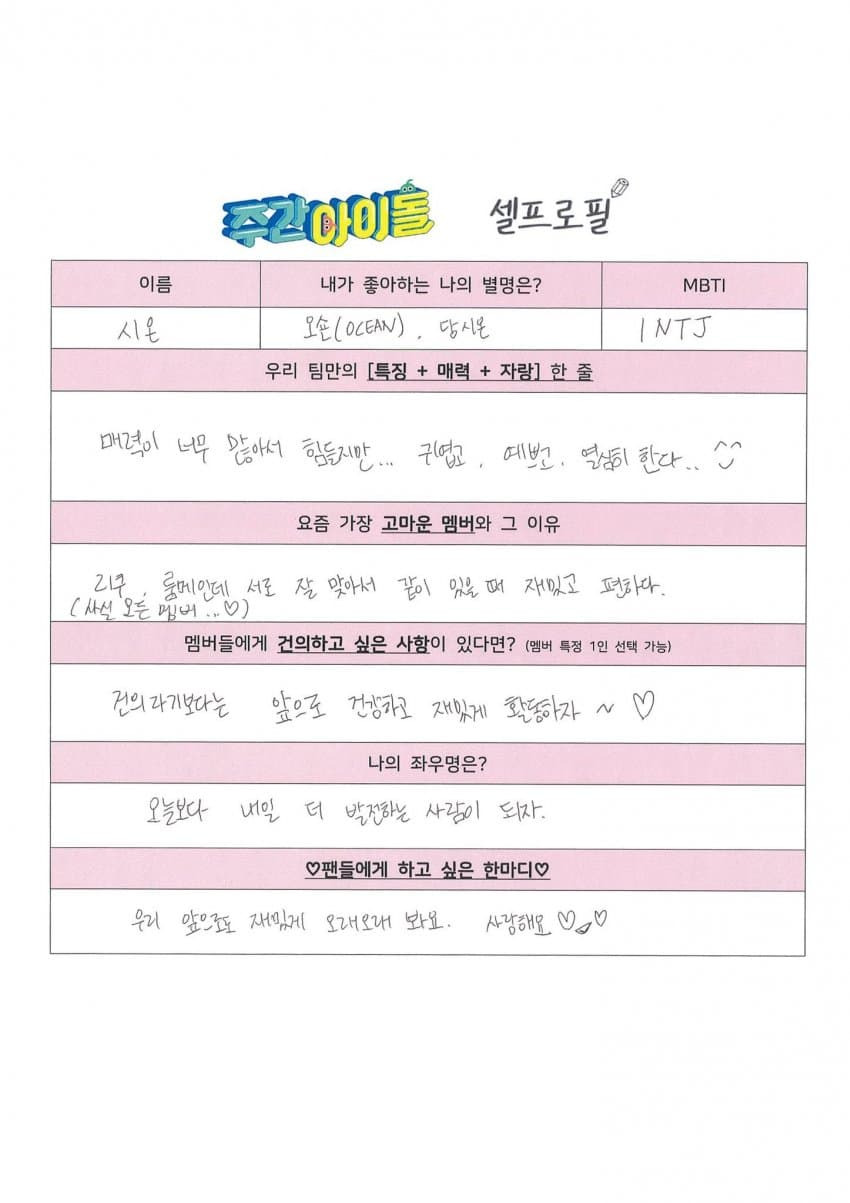 주간아이돌 셀프로필
이름 내가 좋아하는 나의 별명은? MBTI
시온 오숀(OCEAN), 당시온 INTJ
우리 팀만의 [특징 + 매력 + 자랑] 한 줄
매력이 너무 많아서 힘들지만... 귀엽고, 예쁘고, 열심히 한다.. ^^
요즘 가장 고마운 멤버와 그 이유
리쿠, 룸메인데 서로 잘 맞아서 같이 있을 때 재밌고 편하다.
(사실 모든 멤버...♡)
멤버들에게 건의하고 싶은 사항이 있다면? (멤버 특정 1인 선택 가능)
건의라기보다는 앞으로 건강하고 재밌게 활동하자 ~ ♡
나의 좌우명은?
오늘보다 내일 더 발전하는 사람이 되자.
♡팬들에게 하고 싶은 한마디♡
우리 앞으로도 재밌게 오래오래 봐요. 사랑해요 ♡♡